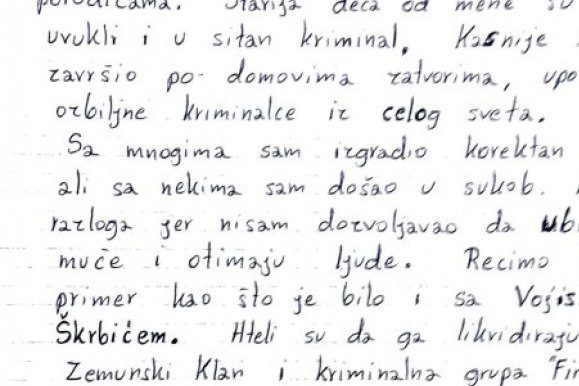 porodicama. Starija deca od mene su
uvukli i u sitan kriminal. Kasnije
završio po domovima zatvorima, upo
ozbiljne kriminalce iz celog sveta.
Sa mnogima sam izgradio korektan
ali sa nekima sam došao u sukob.
razloga jer nisam dozvoljavao da ubi
muče i otimaju ljude. Recimo
primer kao što je bilo i sa Vojis
Škrbićem. Hteli su da ga likvidiraju
Zemunski Klan i kriminalna grupa "Fin